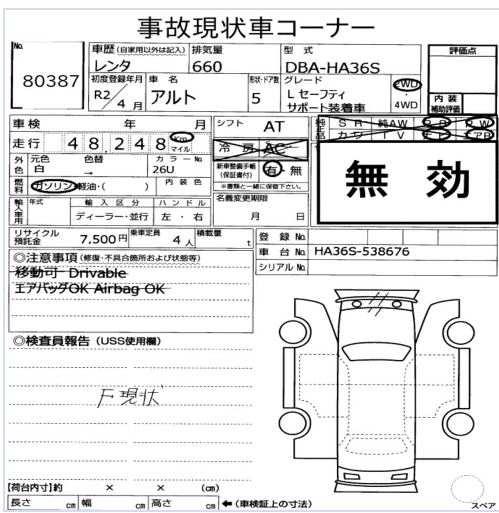 事故現状車コーナー
No.
80387
車歴 (自家用以外は記入)
レンタ
排気量
660
型式
DBA-HA36S
評価点
初度登録年月
R2/4月
車名
アルト
形状・ドア数
5
グレード
L セーフティ
サポート装着車
2WD
・
4WD
内装
補助評価
車検 年 月
走行 48,248 Km マイル
シフト AT
冷房 AC
純正品 SR 純AW PS PW
カワ TV ナビ エアB
無効
外色 元色 白 色替 → カラーNo. 26U
燃料 ガソリン・軽油・( ) 内装色
新車整備手帳
(保証書付)
有・無
※書類と一緒に保管下さい。
輸入車用 年式 輸入区分 ディーラー・並行 ハンドル 左・右
名義変更期限
月 日
リサイクル
預託金
7,500円
乗車定員 4人
積載量 t
登録No.
車台No. HA36S-538676
シリアルNo.
◎注意事項(修復・不具合箇所および状態等)
移動可 Drivable
エアバッグOK Airbag OK
◎検査員報告(USS使用欄)
F現状
【荷台内寸】約 × × (cm)
長さ cm 幅 cm 高さ cm ←(車検証上の寸法)
スペア